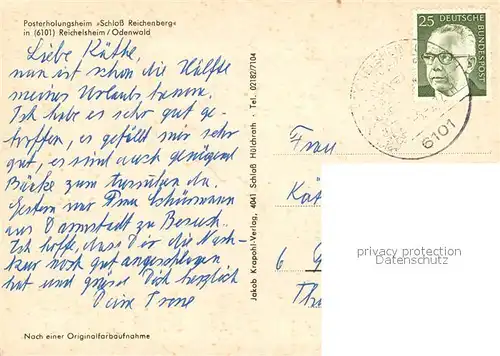 Posterholungsheim »Schloß Reichenberg«
in (6101) Reichelsheim/Odenwald
Liebe Käthe,
nun ist schon die Hälfte
meines Urlaubs herum.
Ich habe es sehr gut ge-
troffen, es gefällt mir sehr
gut, es sind auch genügend
Bänke zum ausruhen da.
Gestern war Frau Schürmann
aus Darmstadt zu Besuch.
Ich hoffe, dass Dir die Nach-
kur noch gut angeschlagen
hat und grüsse Dich herzlich
Deine Irene
Nach einer Originalfarbaufnahme
Jakob Krapohl-Verlag, 4041 Schloß Hülchrath · Tel. 02182/7104
25 DEUTSCHE BUNDESPOST
6101
Frau
Kät
6
Th
privacy protection
Datenschutz